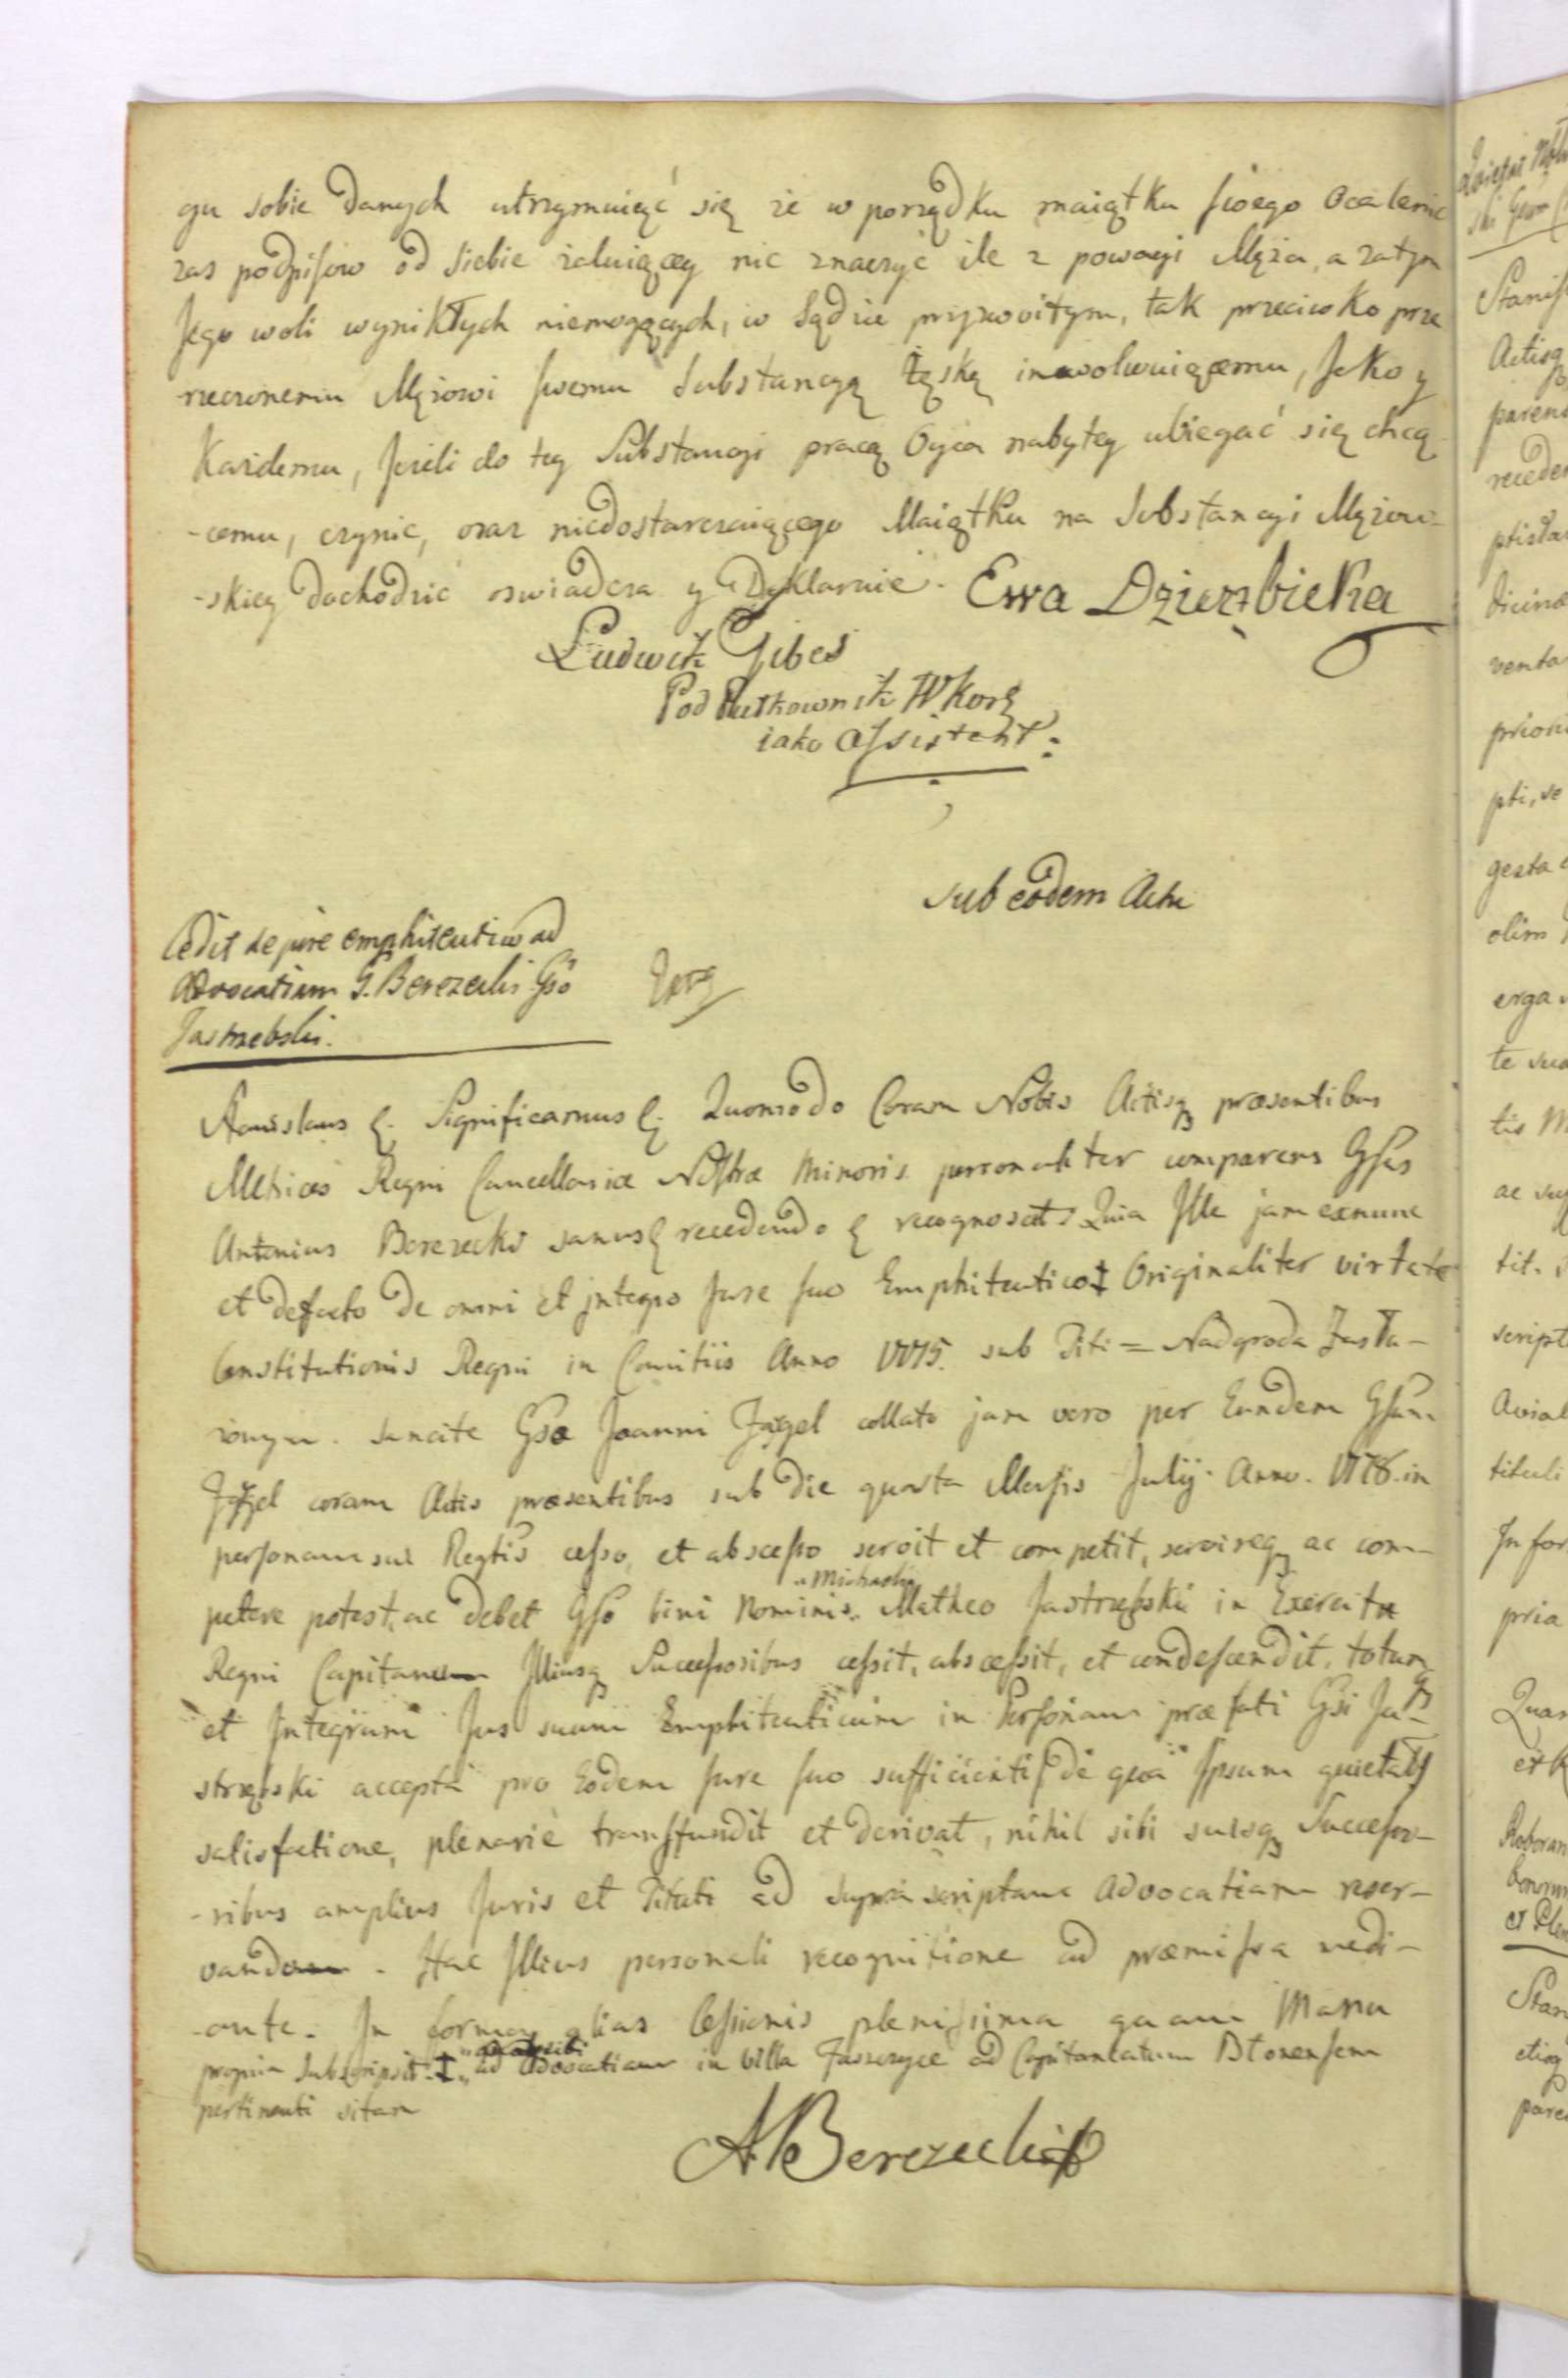 gu sobie danych utrzymuięć się że w porządku maiątku swego Ocalenie
zas podpisow od siebie żaluiącey nic znaczyć ile z powagi Męża, a zatym
Jego woli wynikłych niemogących, w Sądzie przyzwoitym, tak przeciwko prze
rzeczonemu Mężowi swemu Substancyą inwolwuiącemu, Jako y
Każdemu, Jeżeli do tey Substancyi pracą Oyca nabytey ubiegać się chcą-
-cemu, czynic, oraz niedostarczaiącego Maiątku na Substancyi Mężow-
-skiey dochodzić oswiadcza y Deklaruie. Ewa Dzierzbicka
Ludwik Gibes
Pod Pułkownik WKorż
iako Assistent:
Sub eodem Actu
Cedit de jure emphiteutico ad
Advocatiam G. Berezecki Gso
Jastrzebski.
Stanislaus ę. Significamus ę. Quomodo Coram Nobis Actisq praesentibus
Metrices Regni Cancellariae Nostrae Minoris personaliter comparens Gsus
Antonius Berezecki sanus ę recedendo ę recognoscit: Quia Ille jam exnunc
et defacto de omni et integro Jure suo Emphiteutico Ɨ Originaliter virtute
Constitutionis Regni in Comitiis Anno 1775. sub Titi = Nadgroda Zasłu-
żonym. sancite Gso Joanni collato jam vero per Eundem Gsum
coram Actis praesentibus sub die quarta Mensis Julij Anno. 1778. in
personam sui Regtis cesso, et abscesso servit et competit, servireq ac com-
petere potest, ac debet Gso bini Nominis „Michaeli Matheo Jastrzębski in Exercitu
Regni Capitaneo Illiusq Successoribus cessit, abscessit, et condescendit, totumq
et Integrum Jus suum Emphiteuticum in Personam praefati Gsi Ja-
strzębski accepta pro Eodem Jure suo sufficienti, de qua Ipsum quietat,
satisfactione, plenarie transfundit et derivat, nihil sibi suisq Successo-
-ribus amplius Juris et Tituli ad supra scriptam Advocatiam reser-
vando. Hac Illius personali recognitione ad praemissa medi-
-ante. In forma alias Cessionis plenissima quam Manu
propria subscripsit. Ɨ „ad Advocatiam in Villa ad Capitaneatum Błonensem
pertinenti sitam
A Berezecki
Stanis
Actisq
parens
ptis
venta
priori
pti, se
gesta
olim
erga
te sua
tis M
tit.
script
tituli
In for
pria
Quam
et
Stan
pare